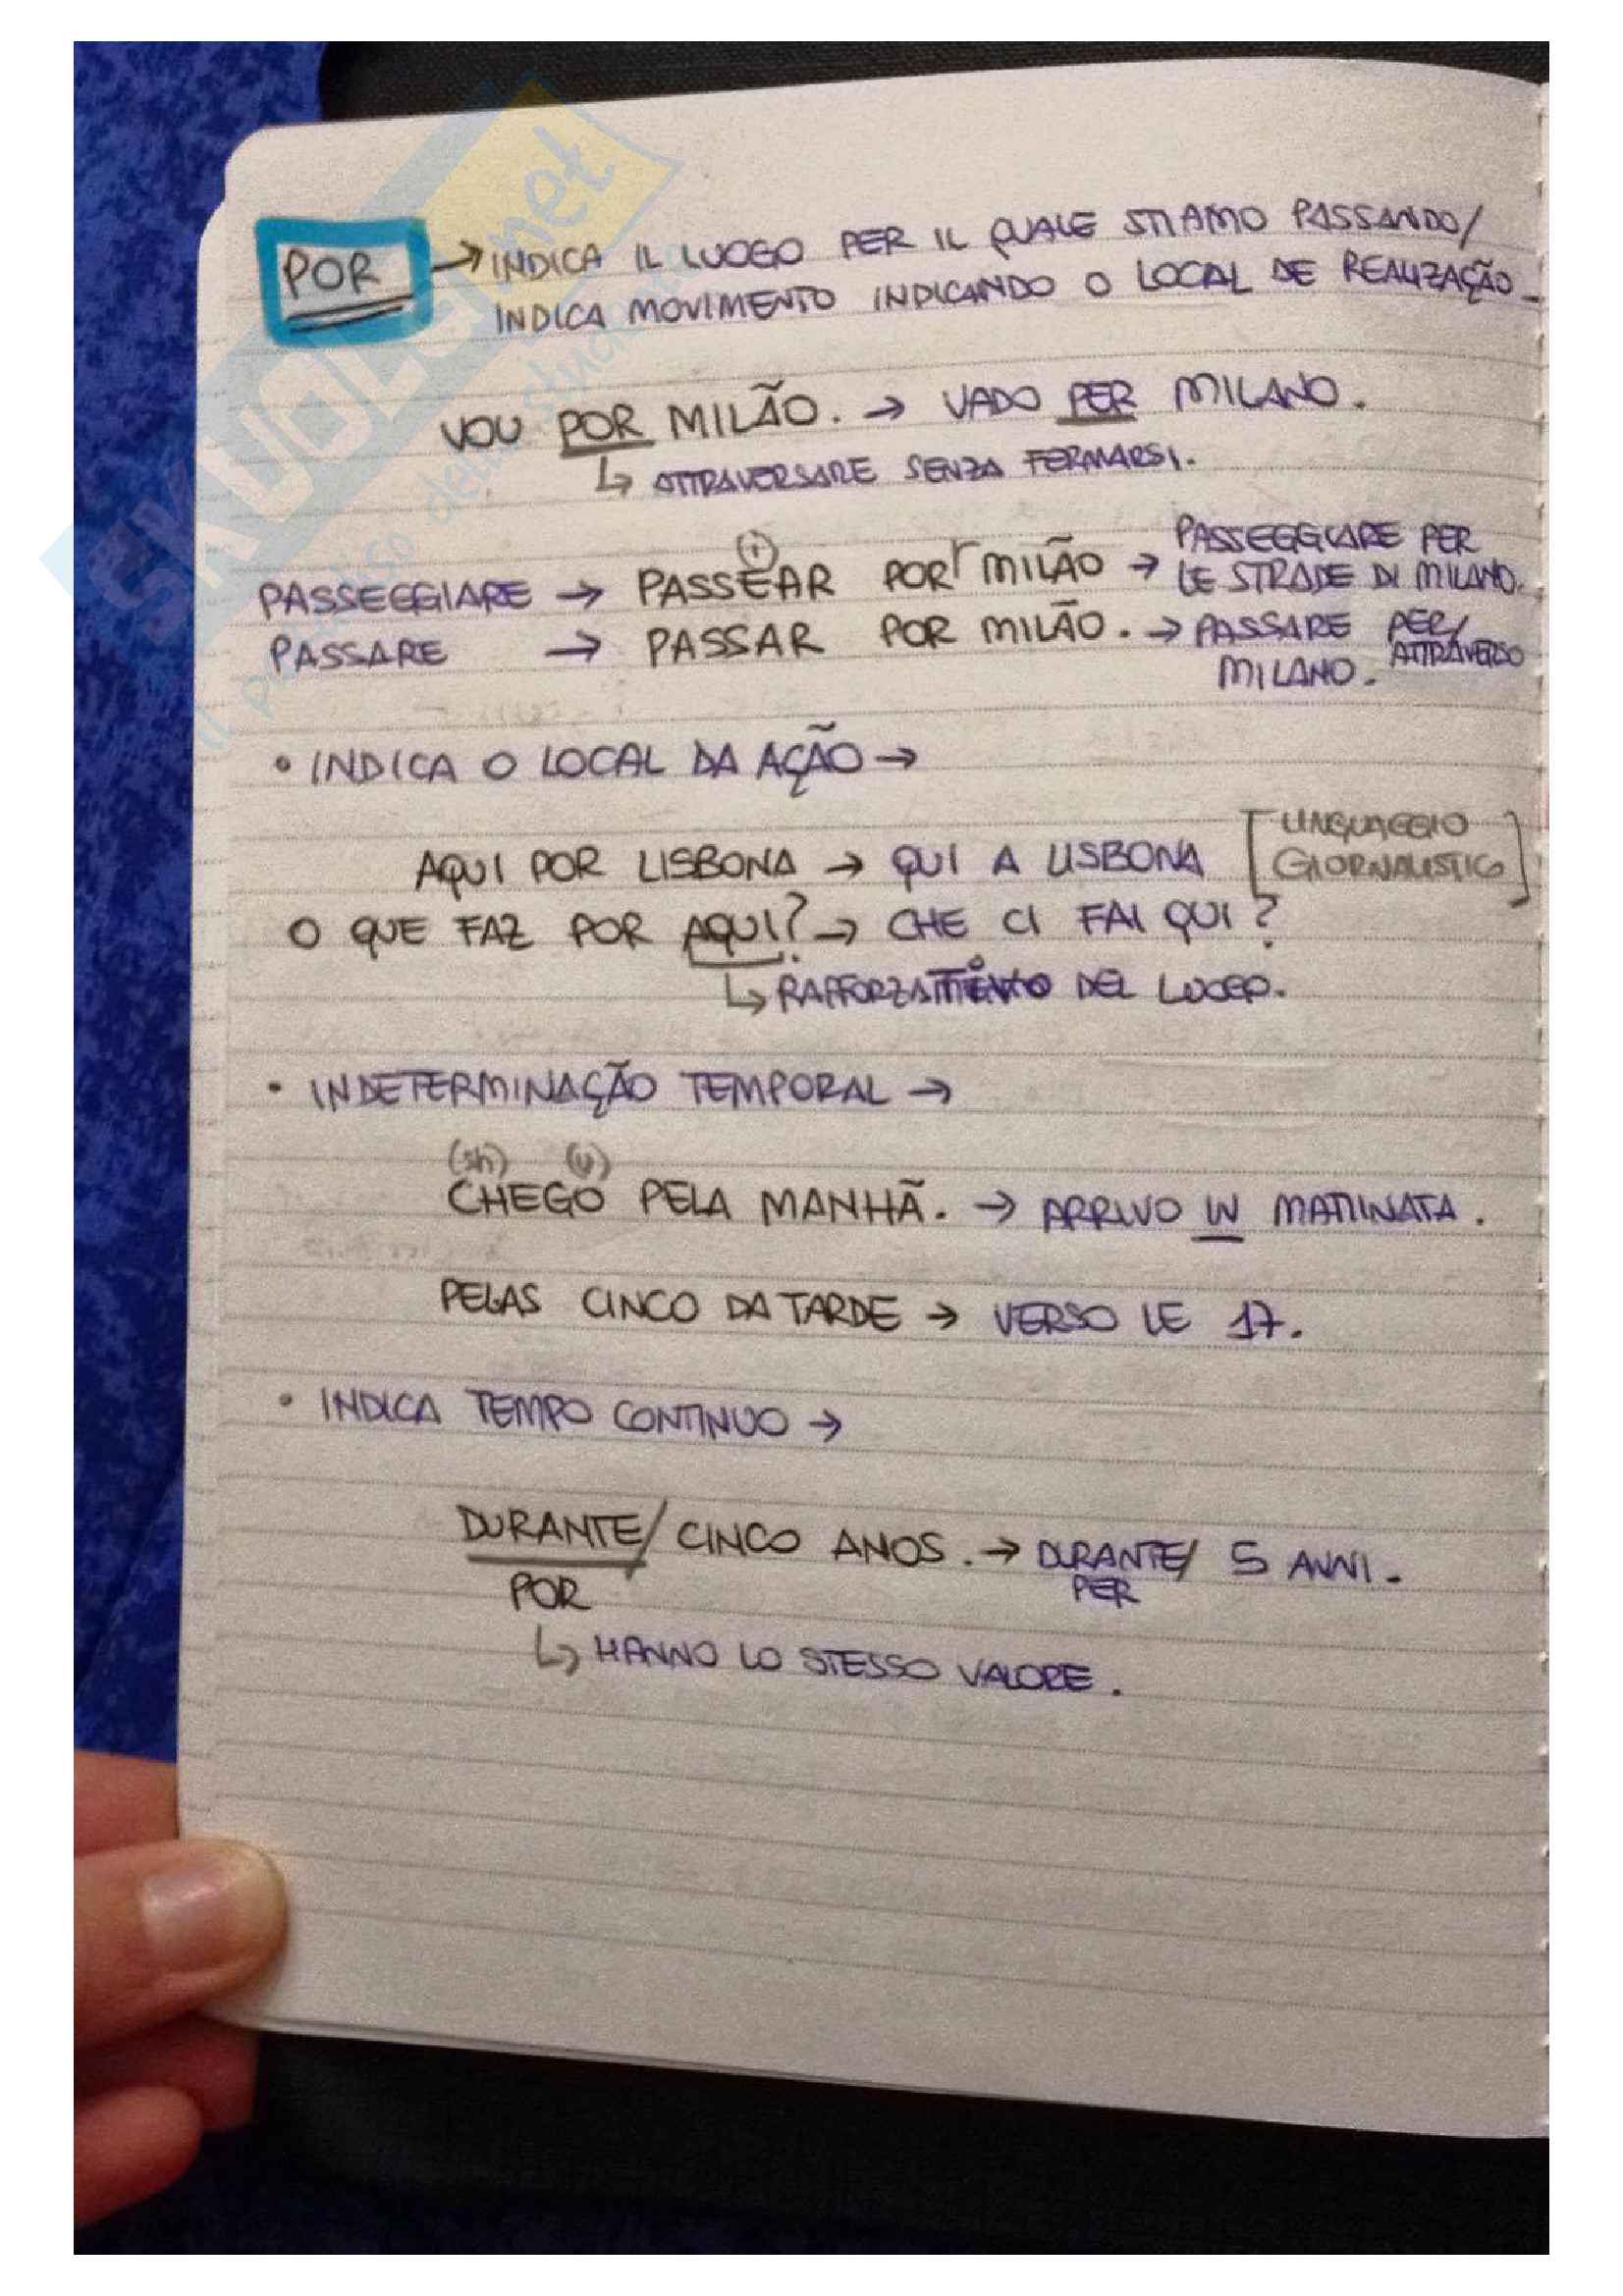 POR → INDICA IL LUOGO PER IL QUALE STIAMO PASSANDO/
INDICA MOVIMENTO INDICANDO O LOCAL DE REALIZAÇÃO
VOU POR MILÃO. → VADO PER MILANO.
↳ ATTRAVERSARE SENZA FERMARSI.
PASSEGGIARE → PASSEAR POR MILÃO → PASSEGGIARE PER
(i)
LE STRADE DI MILANO.
PASSARE → PASSAR POR MILÃO. → PASSARE PER/
ATTRAVERSO
MILANO.
• INDICA O LOCAL DA AÇÃO →
AQUI POR LISBONA → QUI A LISBONA [LINGUAGGIO
GIORNALISTICO]
O QUE FAZ POR AQUI? → CHE CI FAI QUI?
↳ RAFFORZATIVO DEL LUOGO.
• INDETERMINAÇÃO TEMPORAL →
(sh) (u)
CHEGO PELA MANHÃ. → ARRIVO IN MATTINATA.
PELAS CINCO DA TARDE → VERSO LE 17.
• INDICA TEMPO CONTINUO →
DURANTE/ CINCO ANOS. → DURANTE/ 5 ANNI.
POR PER
↳ HANNO LO STESSO VALORE.
SKUOLA.net
il paradiso dello studente